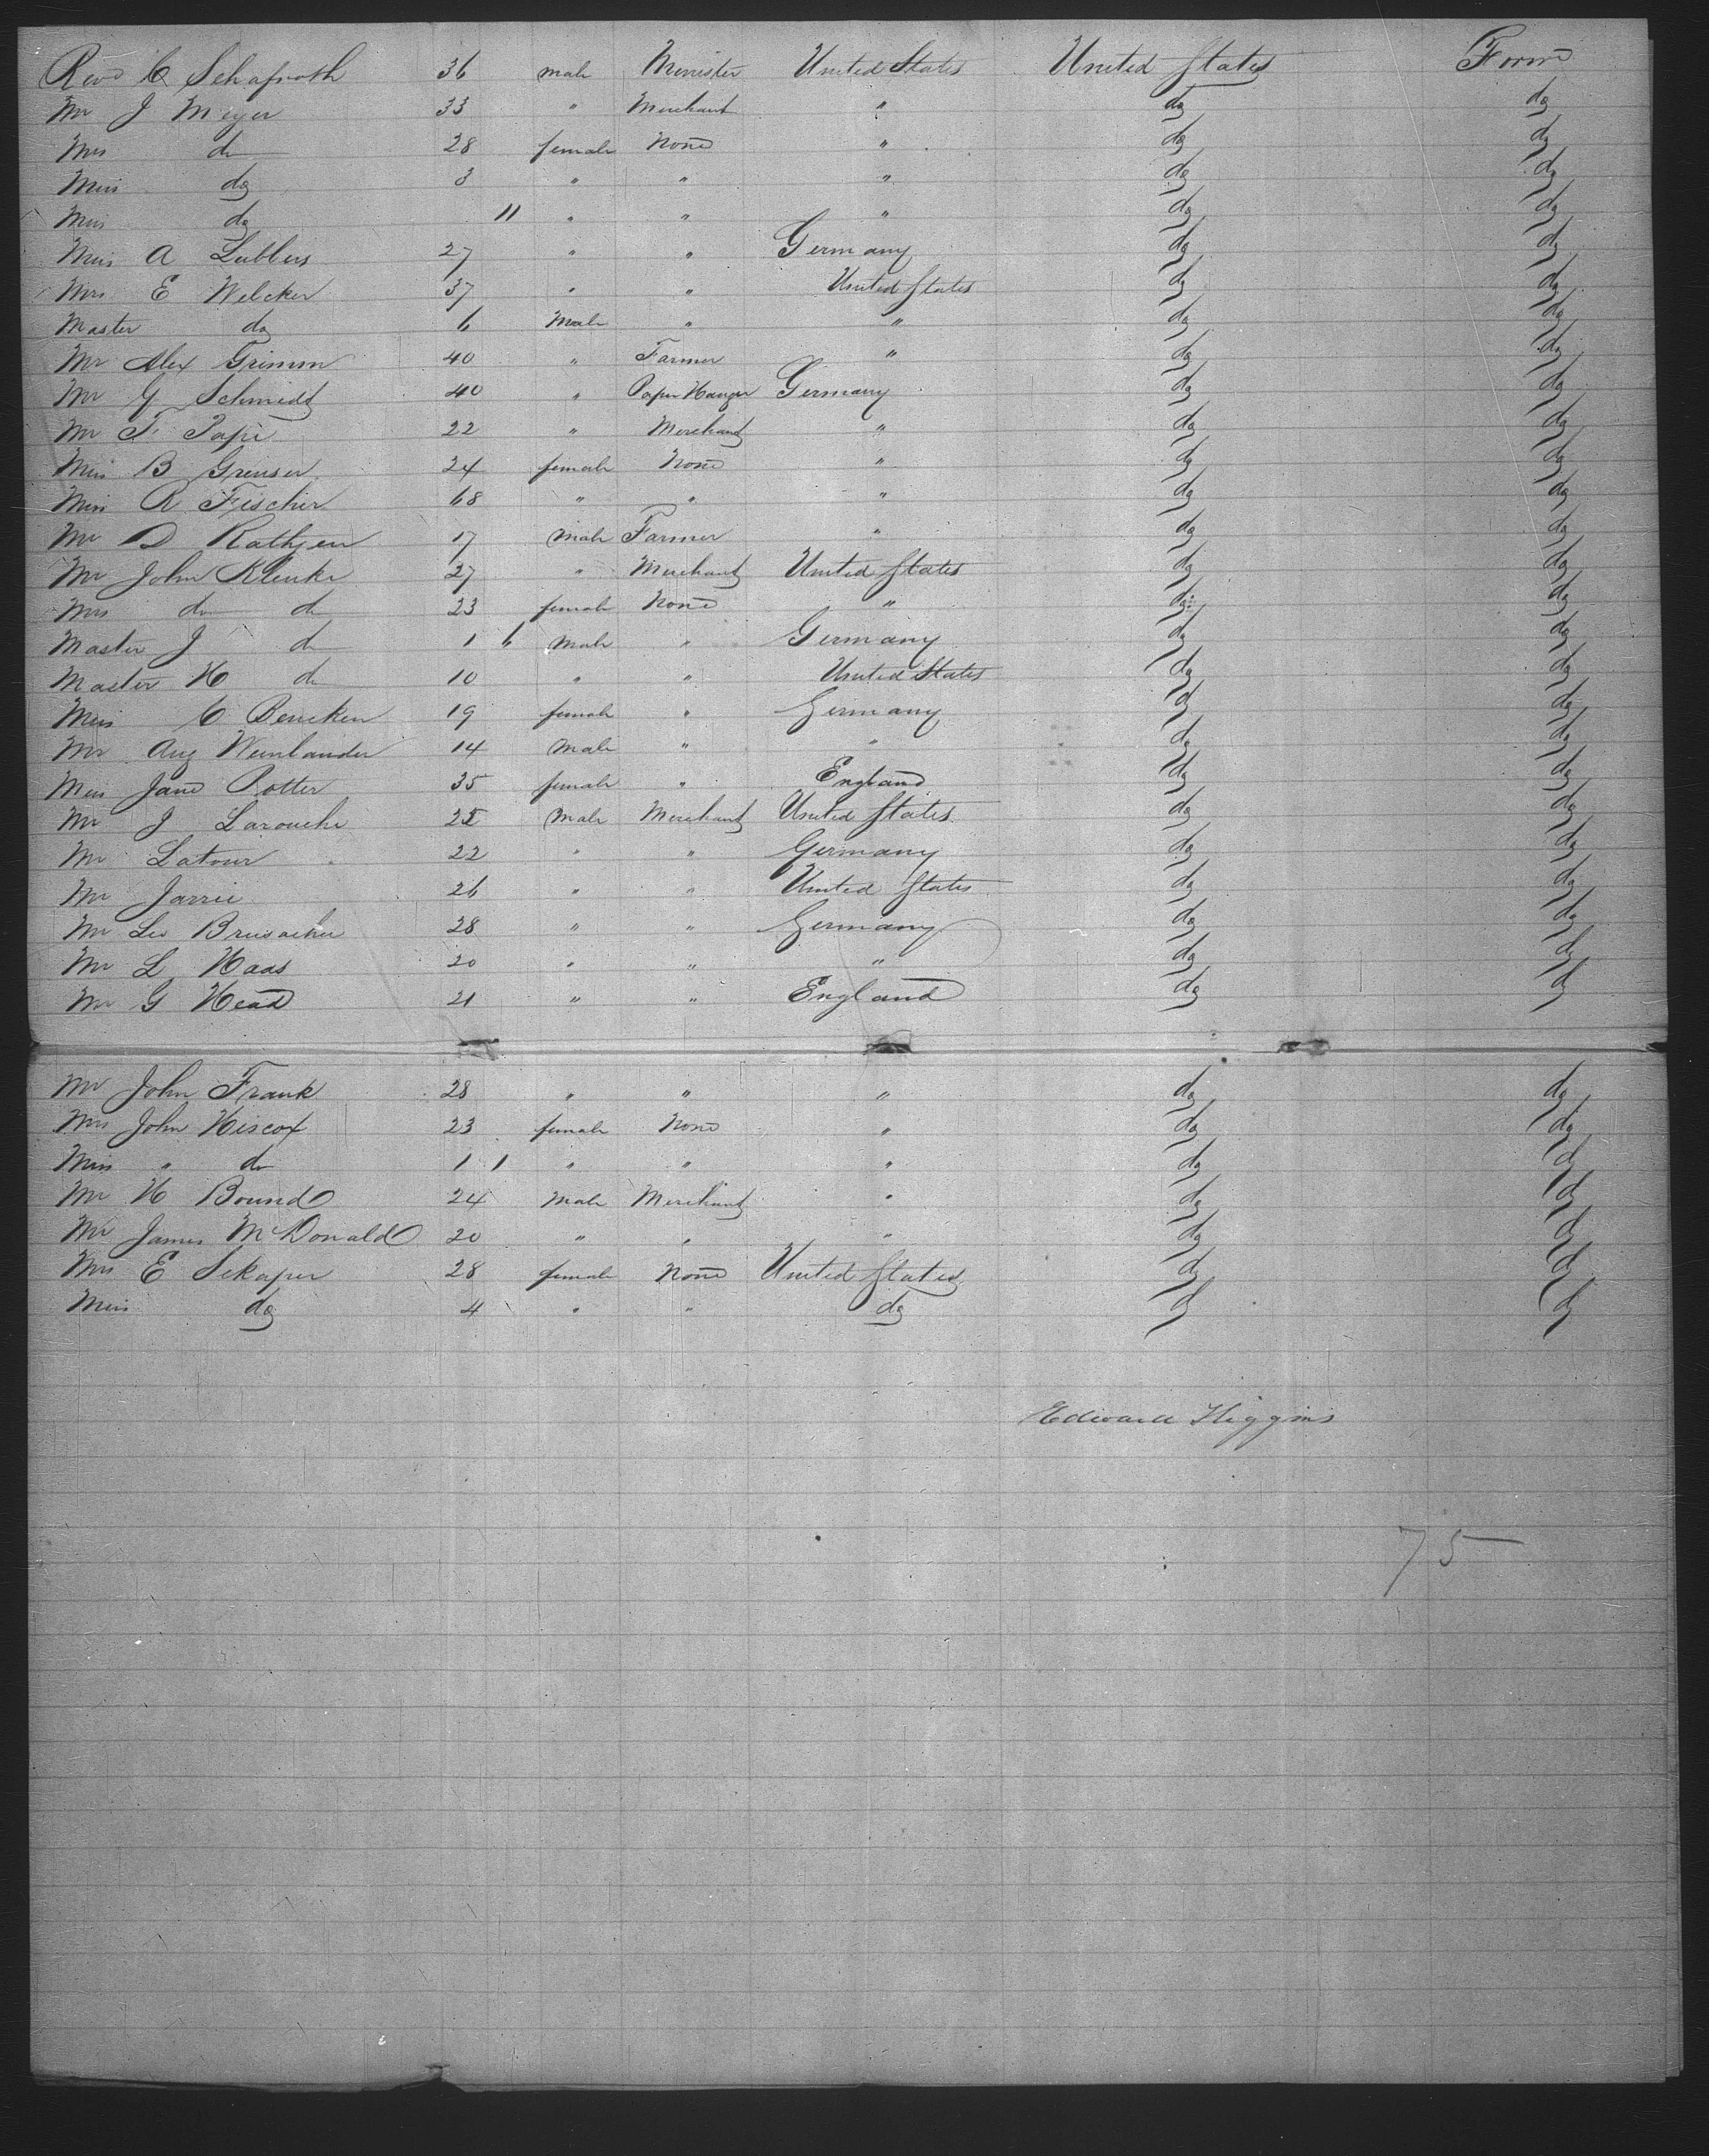 Revd C Schafroth 36 male Minister United States United States Form
Mr J Meyer 33 " Merchant " do do
Mrs do 28 female None " do do
Miss do 3 " " " do do
Miss do 11 " " " do do
Miss A Lubbers 27 " " Germany do do
Mrs E Welcker 37 " " United States do do
Master do 6 Male " " do do
Mr Alex Grimm 40 " Farmer " do do
Mr G Schmidt 40 " Paper Hanger Germany do do
Mr F Pape 22 " Merchant " do do
Miss B Greuser 24 female None " do do
Miss R Fischer 68 " " " do do
Mr D Rathjen 17 male Farmer " do do
Mr John Klenke 27 " Merchant United States do do
Mrs do do 23 female None " do do
Master J do 1 6 male " Germany do do
Master H do 10 " " United States do do
Miss C Pencken 19 female " Germany do do
Mr Aug Weinlander 14 Male " " do do
Miss Jane Potter 35 female " England do do
Mr J Larouche 25 Male Merchant United States do do
Mr Latour 22 " " Germany do do
Mr Jarrie 26 " " United States do do
Mr Leo 28 " " Germany do do
Mr L Haas 20 " " " do do
Mr G Head 21 " " England do do
Mr John Frank 28 " " " do do
Mrs John Hiscox 23 female None " do do
Miss " do 1 1 " " " do do
Mr H Bound 24 Male Merchant " do do
Mr James McDonald 20 " " " do do
Mrs E Skaper 28 female None United States do do
Miss do 4 " " do do do
Edward Higgins
75